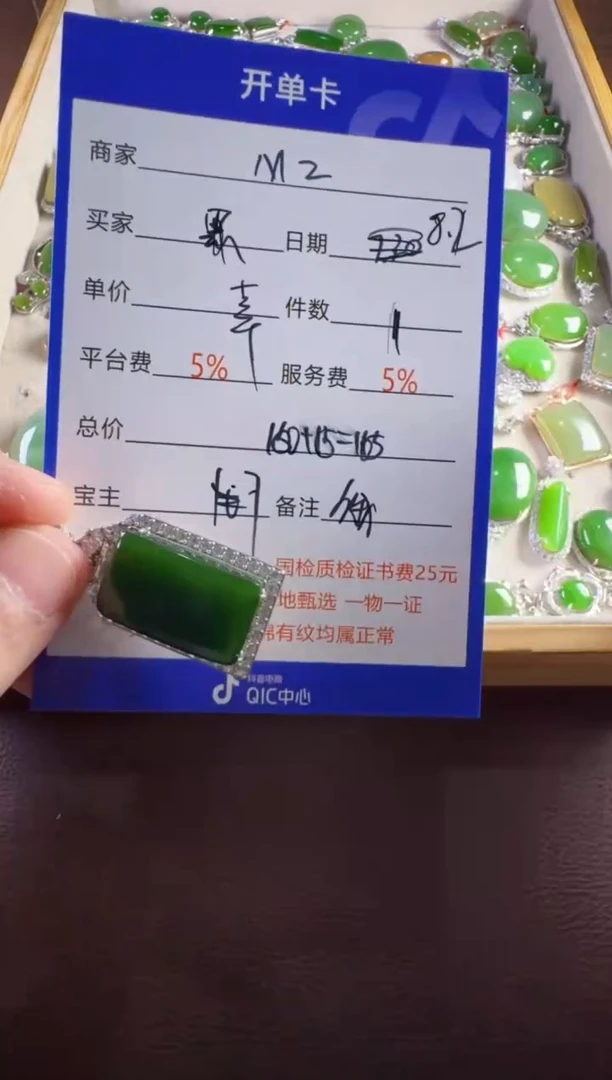 开单卡
商家 M2
买家 累 日期 8.2
单价 件数 1
平台费 5% 服务费 5%
总价 150+15=165
宝主 备注
国检质检证书费25元
地甄选 一物一证
棉有纹均属正常
抖音电商
QIC中心